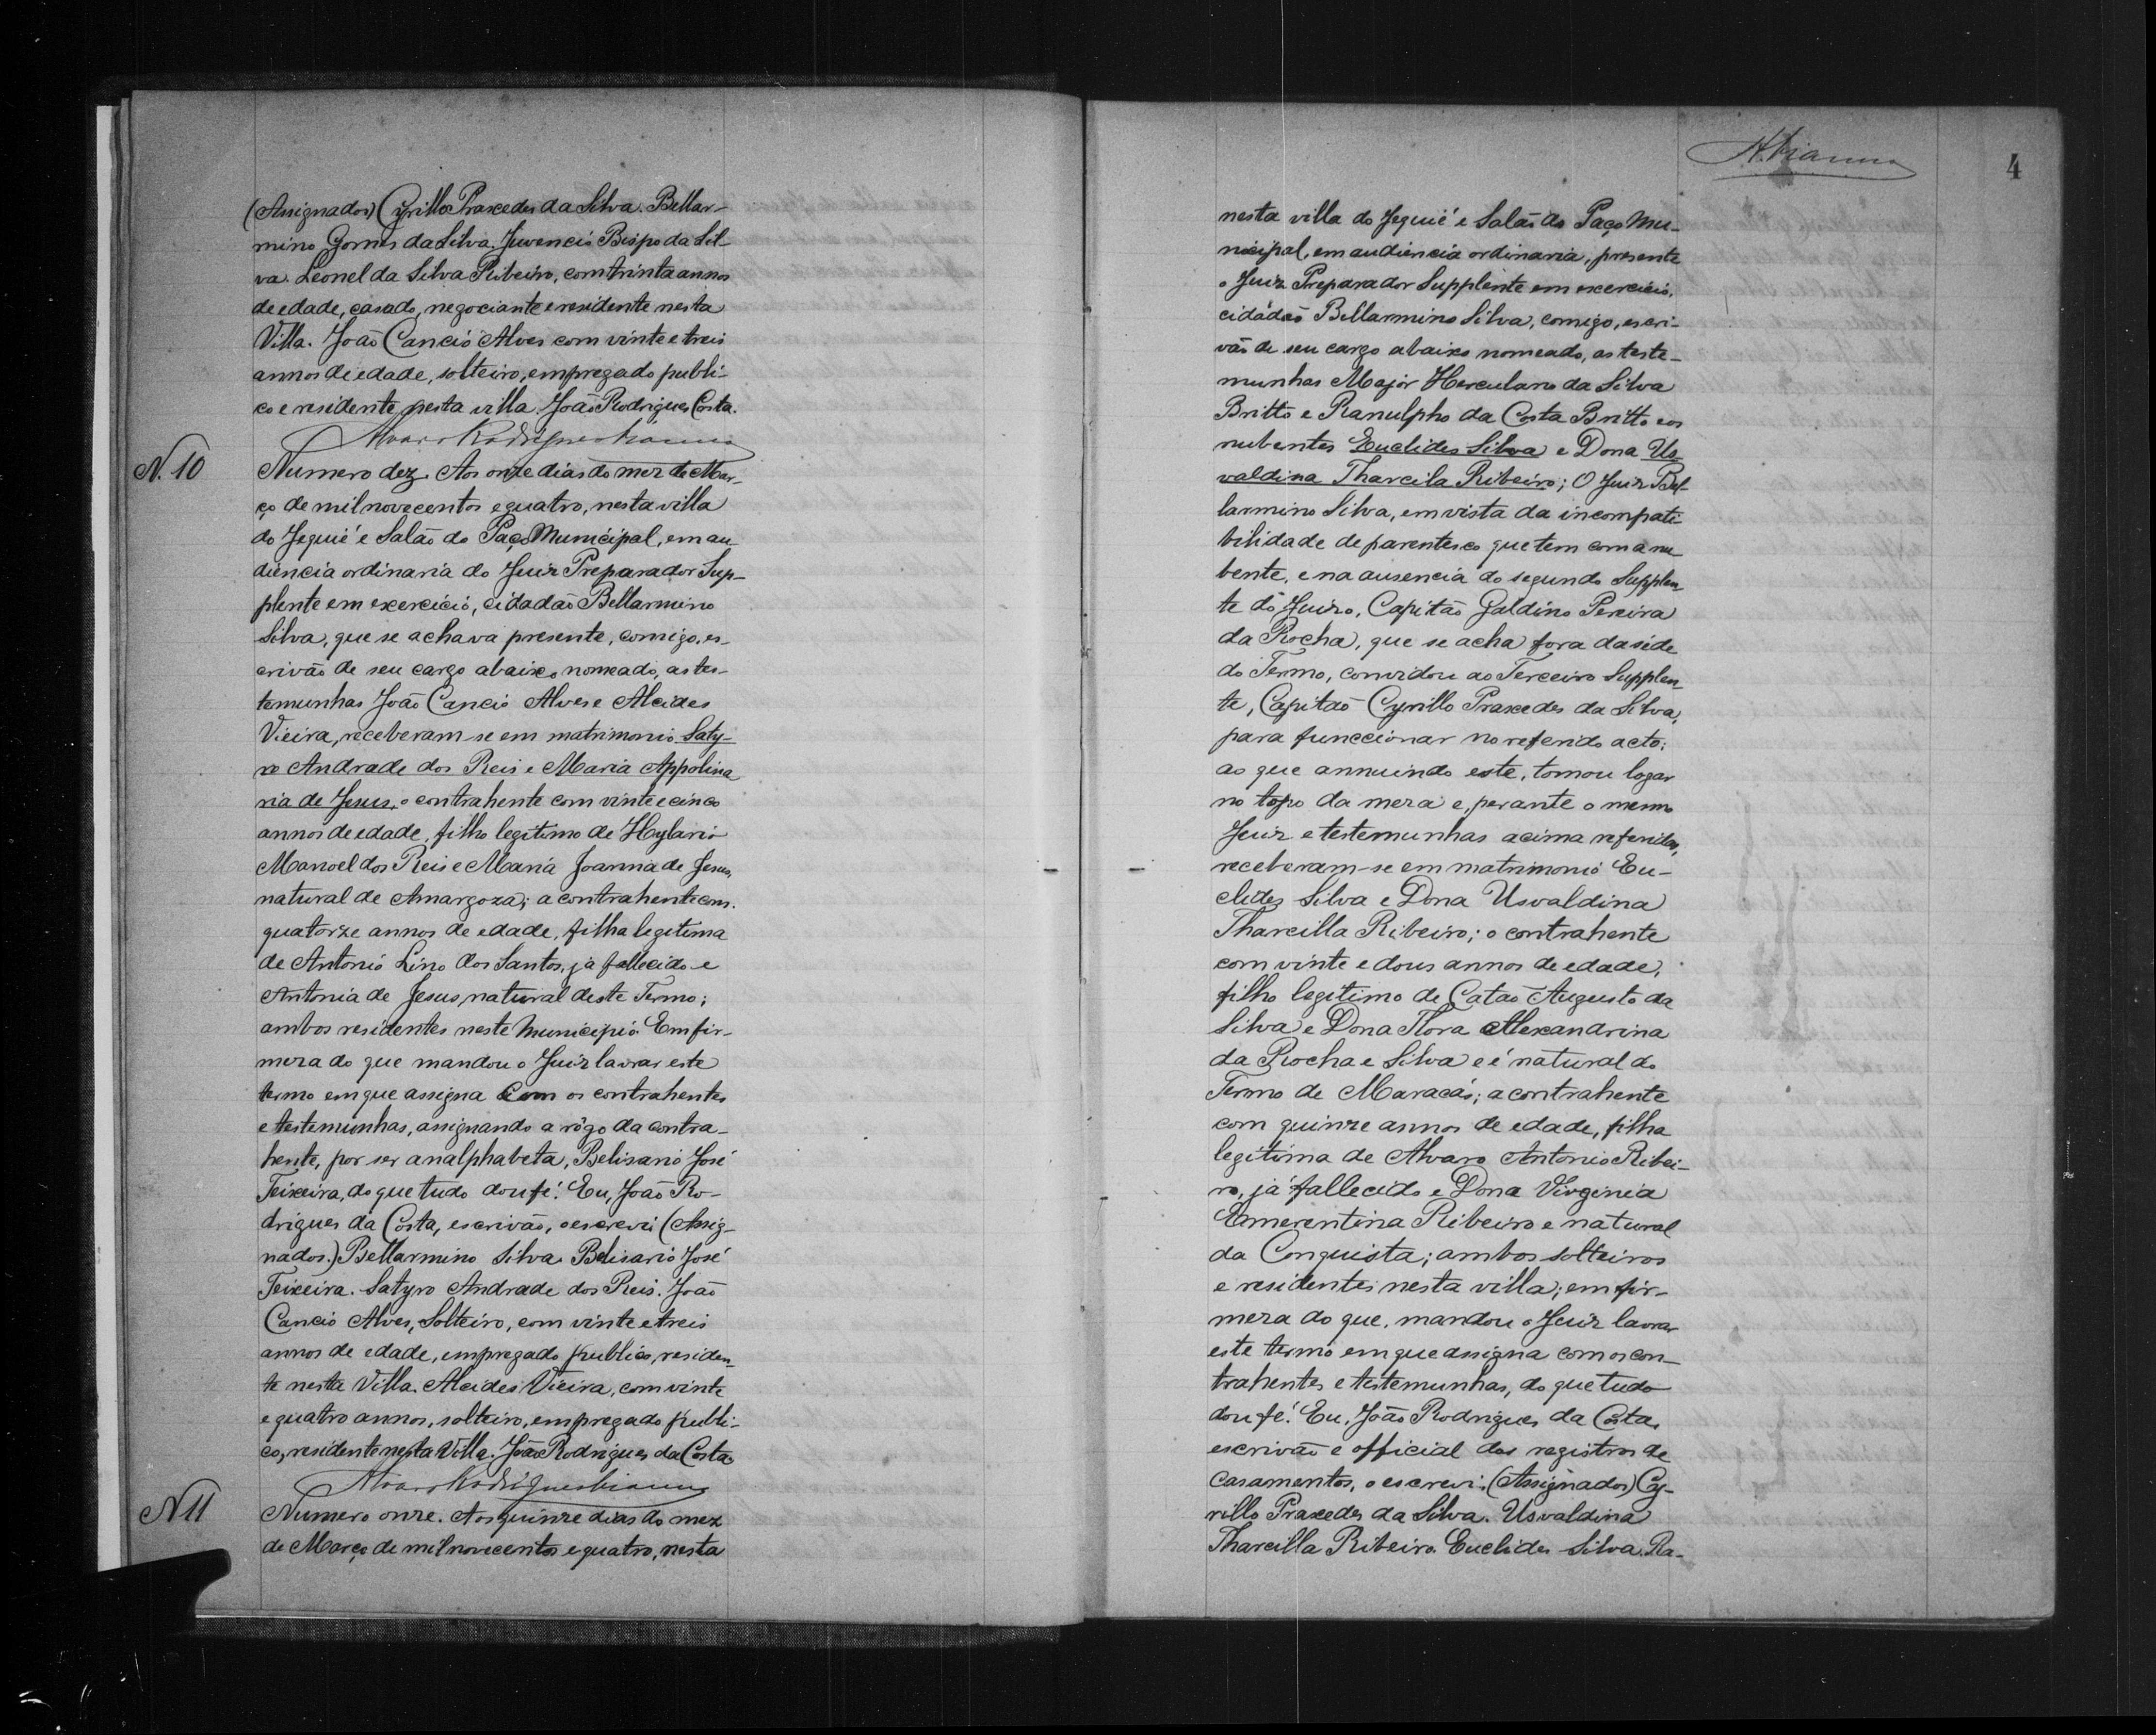 (Assignados) Cyrillo Praxedes da Silva. Bellar-
mino Gomes da Silva. Juvencio Bispo da Sil-
va. Leonel da Silva Ribeiro, com trinta annos
de edade, casado, negociante e residente nesta
Villa. João Cancio Alves com vinte e treis
annos de edade, solteiro, empregado publi-
co e residente nesta villa. João Rodrigues Costa.
Alvaro Rodrigues Vianna
N. 10
Numero dez. Aos onze dias do mez de Mar-
ço de mil novecentos e quatro, nesta villa
do Jequié e Salão do Paço Municipal, em au-
diencia ordinaria do Juiz Preparador Sup-
plente em exercicio, cidadão Bellarmino
Silva, que se achava presente, comigo, es-
crivão de seu cargo abaixo nomeado, as tes-
temunhas João Cancio Alves e Alcides
Vieira, receberam-se em matrimonio Saty-
ro Andrade dos Reis e Maria Appolina
ria de Jesus, o contrahente com vinte e cinco
annos de edade, filho legitimo de Hylario
Manoel dos Reis e Maria Joanna de Jesus,
natural de Amargoza; a contrahente com
quatorze annos de edade, filha legitima
de Antonio Lino dos Santos, já fallecido e
Antonia de Jesus, natural deste Termo;
ambos residentes neste Municipio. Em fir-
meza do que mandou o Juiz lavrar este
termo em que assigna com os contrahentes
e testemunhas, assignando a rôgo da contra-
hente, por ser analphabeta, Belisario José
Teixeira, do que tudo dou fé. Eu, João Ro-
drigues da Costa, escrivão, o escrevi (Assig-
nados.) Bellarmino Silva. Belisario José
Teixeira. Satyro Andrade dos Reis. João
Cancio Alves, Solteiro, com vinte e treis
annos de edade, empregado publico, residen-
te nesta Villa. Alcides Vieira, com vinte
e quatro annos, solteiro, empregado publi-
co, residente nesta Villa. João Rodrigues da Costa
Alvaro Rodrigues Vianna
N 11
Numero onze. Aos quinze dias do mez
de Março de mil novecentos e quatro, nesta
A. Vianna
4
nesta villa do Jequié e Salão do Paço Mu-
nicipal, em audiencia ordinaria, presente
o Juiz Preparador Supplente em exercicio,
cidadão Bellarmino Silva, comigo, escri-
vão de seu cargo abaixo nomeado, as teste-
munhas Major Herculano da Silva
Britto e Ranulpho da Costa Britto e os
nubentes Euclides Silva e Dona Us
valdina Tharcila Ribeiro; O Juiz Bel-
larmino Silva, em vista da incompati-
bilidade de parentesco que tem com a nu-
bente, e na ausencia do segundo Supplen-
te do Juizo, Capitão Galdino Pereira
da Rocha, que se acha fora da séde
do Termo, convidou ao Terceiro Supplen-
te, Capitão Cyrillo Praxedes da Silva,
para funccionar no referido acto;
ao que annuindo este, tomou logar
no topo da meza e, perante o mesmo
Juiz e testemunhas acima referidas,
receberam-se em matrimonio Eu-
clides Silva e Dona Usvaldina
Tharcilla Ribeiro; o contrahente
com vinte e dous annos de edade,
filho legitimo de Catão Augusto da
Silva e Dona Flora Alexandrina
da Rocha e Silva e é natural do
Termo de Maracás; a contrahente
com quinze annos de edade, filha
legitima de Alvaro Antonio Ribei-
ro, já fallecido e Dona Virginia
Emerentina Ribeiro e natural
da Conquista; ambos solteiros
e residentes nesta villa; em fir-
meza do que, mandou o Juiz lavrar
este termo em que assigna com os con-
trahentes e testemunhas, do que tudo
dou fé. Eu, João Rodrigues da Costa,
escrivão e official dos registros de
Casamentos, o escrevi. (Assignados) Cy-
rillo Praxedes da Silva. Usvaldina
Tharcilla Ribeiro. Euclides Silva. Ra-